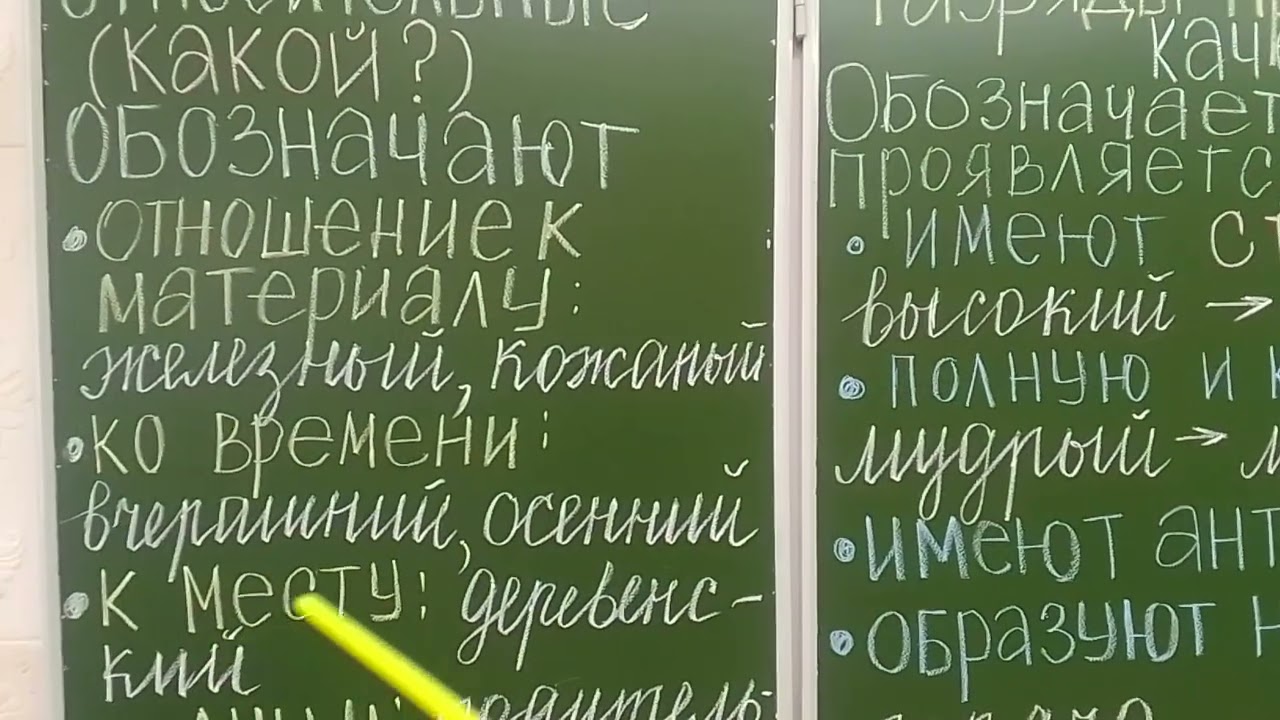 относительные
(какой?)
Обозначают
• отношение к
материалу:
железный, кожаный
• ко времени:
вчерашний, осенний
• к месту: деревенс-
кий
разряды
Обозначает
проявляетс
• имеют
высокий →
• полную и
мудрый →
• имеют
• образуют